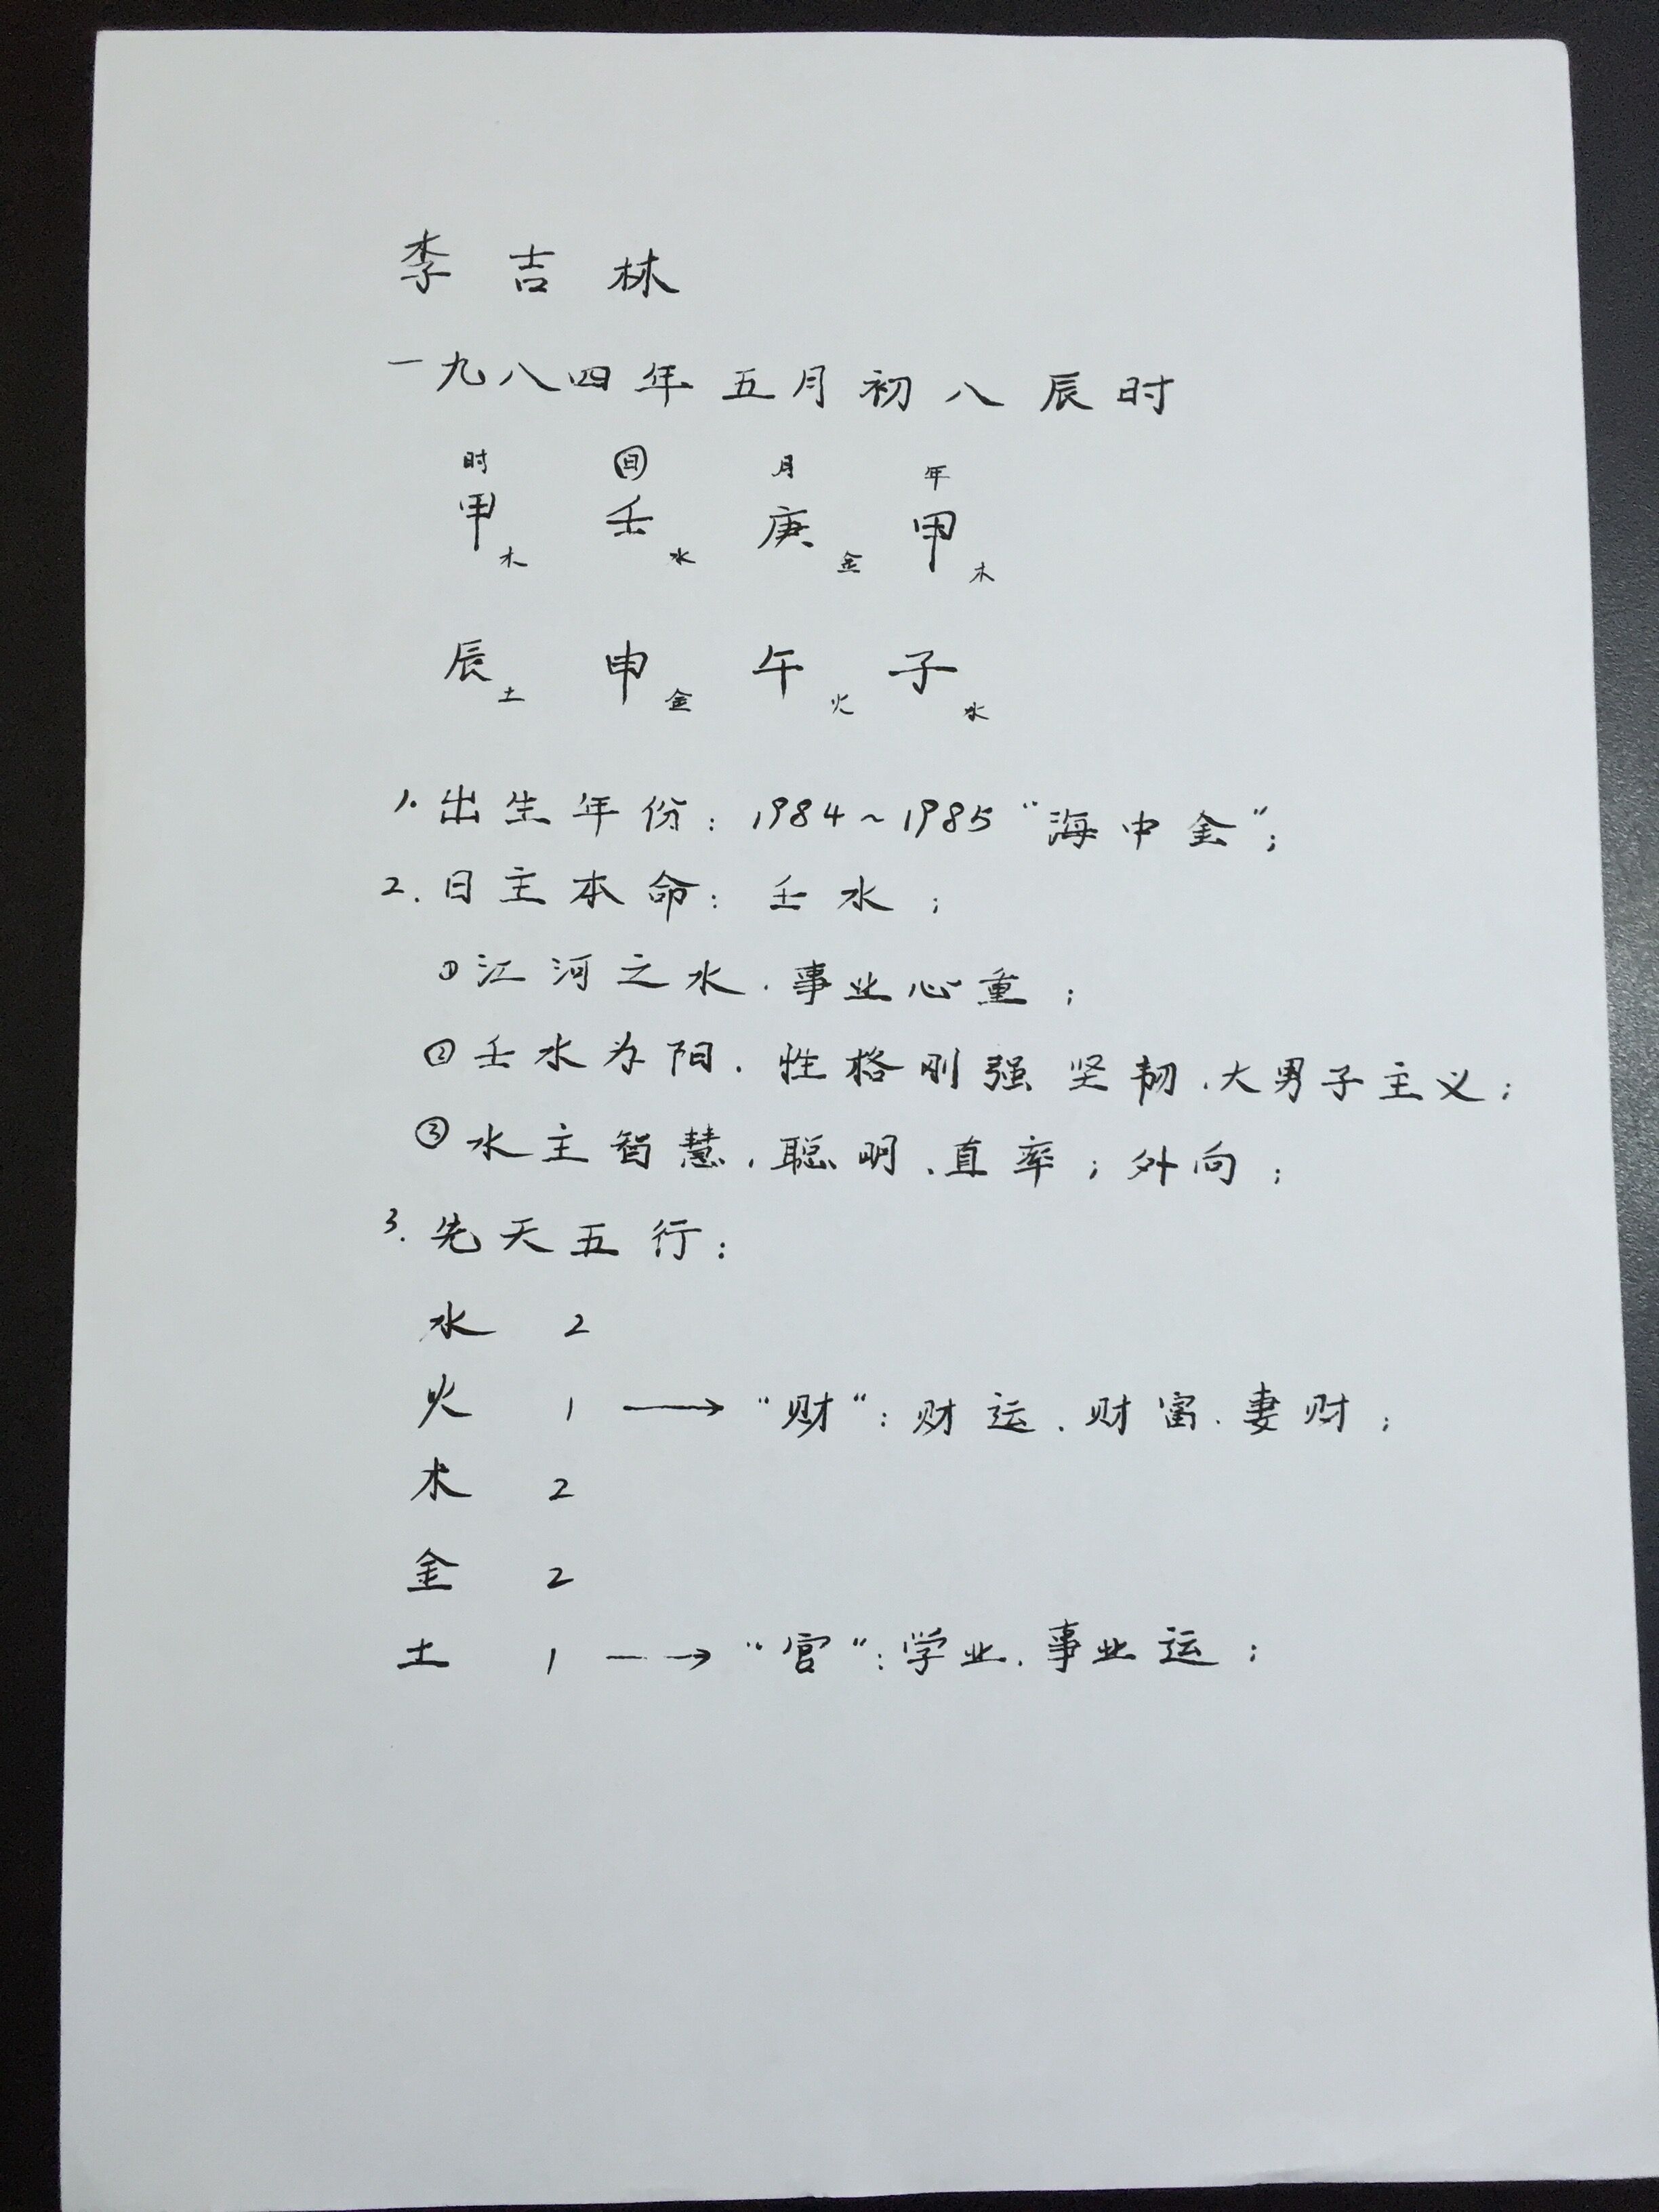 李吉林
一九八四年五月初八辰时
时 日 月 年
甲木 壬水 庚金 甲木
辰土 申金 午火 子水
1. 出生年份：1984～1985 "海中金"；
2. 日主本命：壬水；
①江河之水、事业心重；
②壬水为阳、性格刚强坚韧、大男子主义；
③水主智慧、聪明、直率；外向；
3. 先天五行：
水 2
火 1 → "财"：财运、财富、妻财；
木 2
金 2
土 1 → "官"：学业、事业运；